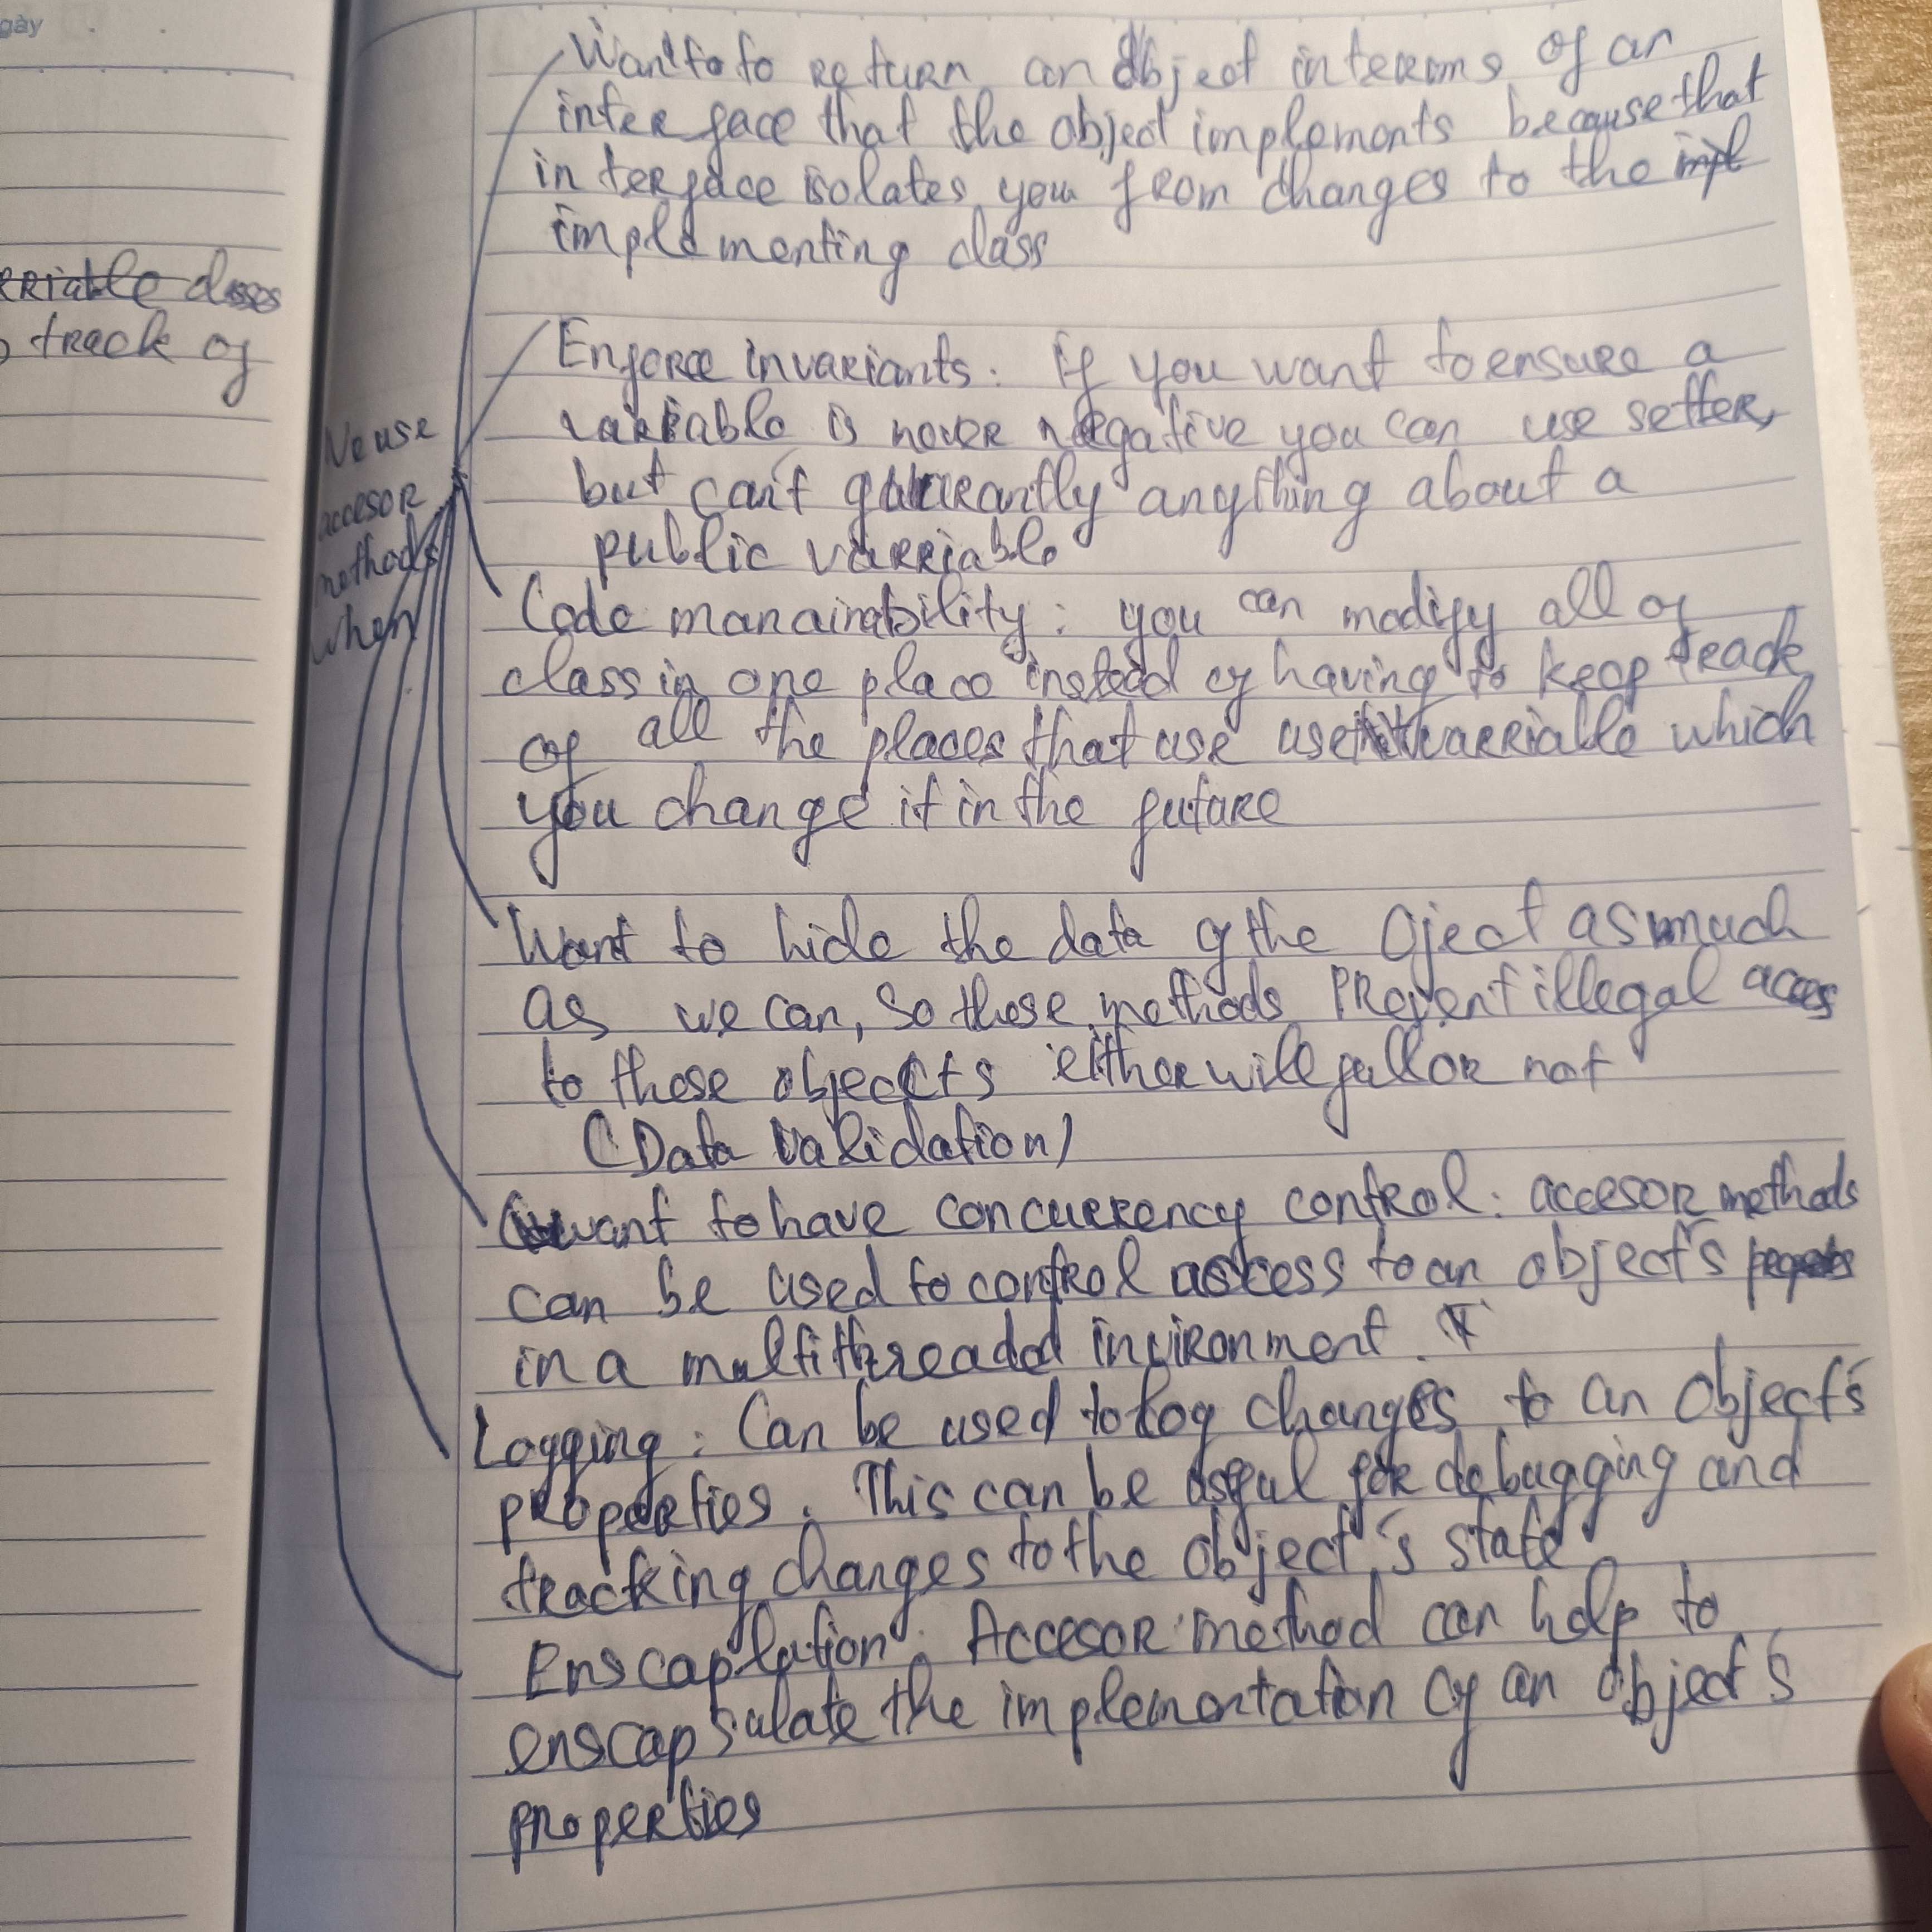 gày
erriable classes
track of
We use
accesor
methods
when
Want to to return an object in terms of an
interface that the object implements because that
interface isolates you from changes to the impl
implementing class
Enforce invariants. If you want to ensure a
variable is never negative you can use setter,
but can't guarantly anything about a
public varriable
Code manainability: you can modify all of
class in one place instead of having to keep track
of all the places that use use varriable which
you change it in the future
Want to hide the data of the Oject as much
as we can, So these methods Prevent illegal acces
to those objects either willfull or not
(Data Validation)
want to have concurrency control: accesor methods
can be used to control access to an object's
in a multithreaded invironment.
Logging: Can be used to log changes to an object's
properties. This can be useful for debugging and
tracking changes to the object's state
Enscaplation: Accesor method can help to
enscapsulate the implementation of an object's
properties